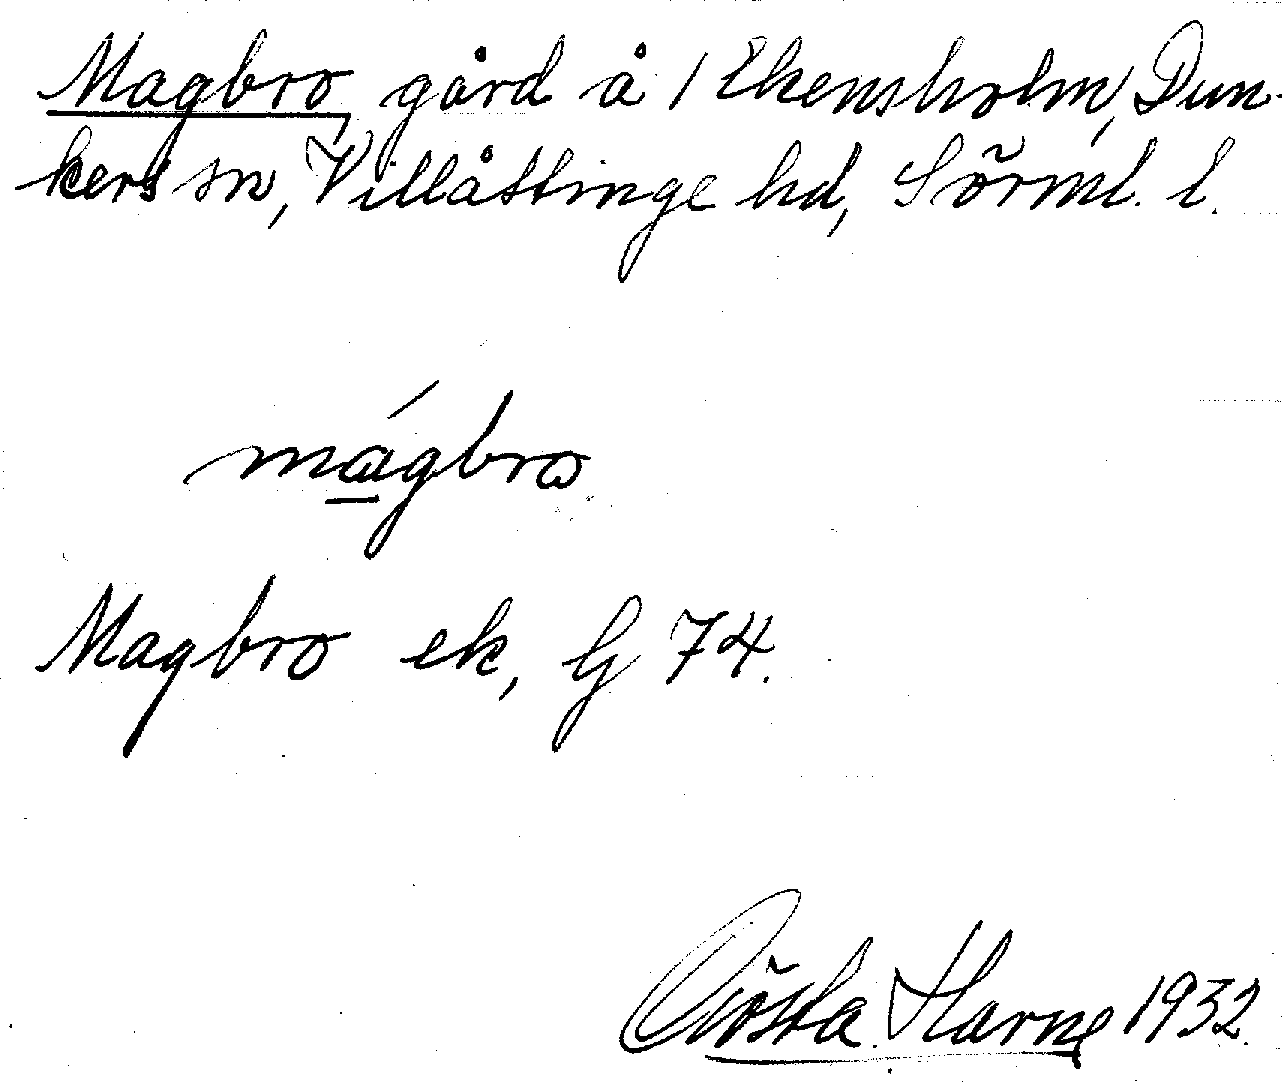 Magbro, gård å 1 Ekensholm, Dun-
kers sn, Villåttinge hd, Sörml. l.
mágbro
Magbro ek, G 74.
Gösta Harne 1932.